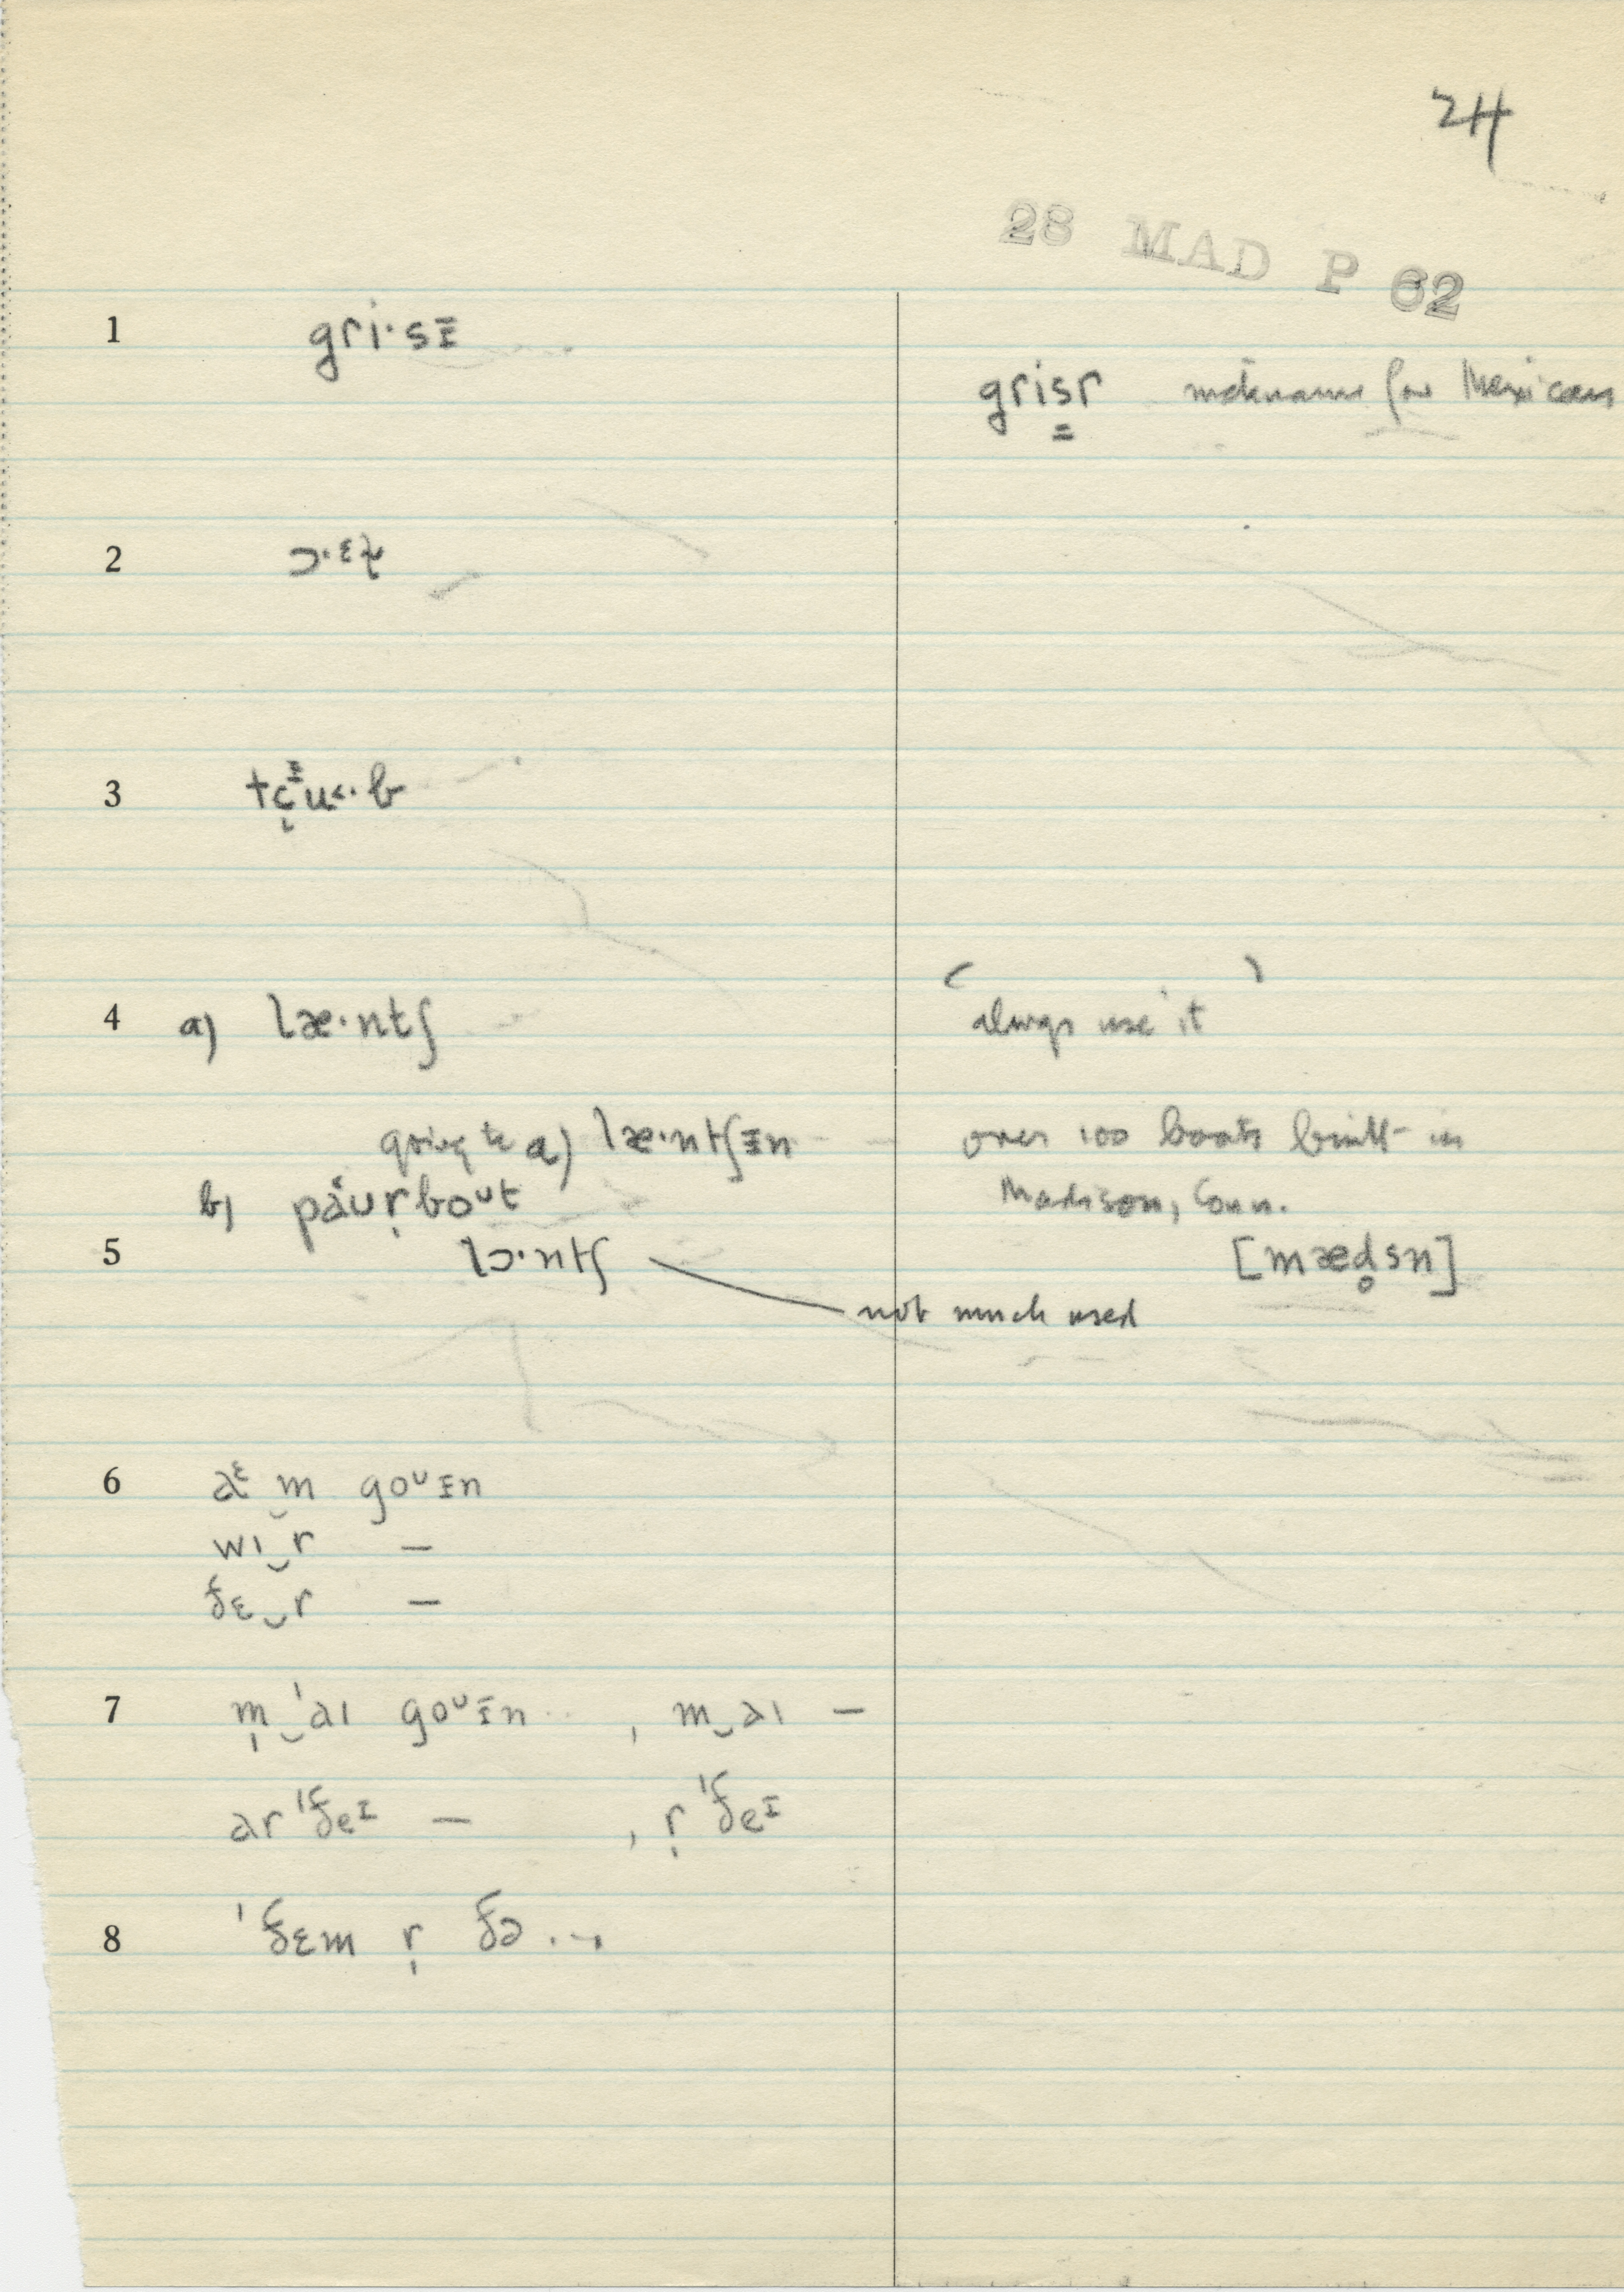 24
28 MAD P 62
1 gri·sɪ
grisr nickname for Mexicans
2
3
4 a) læ·ntʃ
always use it
going to a) læ·ntʃɪn over 100 boats built in
b) paʊr̩boᵘt Madison, Conn.
5 lɔ·ntʃ [mæd̥sn]
not much used
6 aᵋ‿m goᵘɪn
wi‿r –
ðɛ‿r –
7 m̩‿ˈaɪ goᵘɪn , m‿aɪ –
ar ˈðeᶦ – , r̩ ˈðeᶦ
8 ˈðɛm r̩ ðə ...